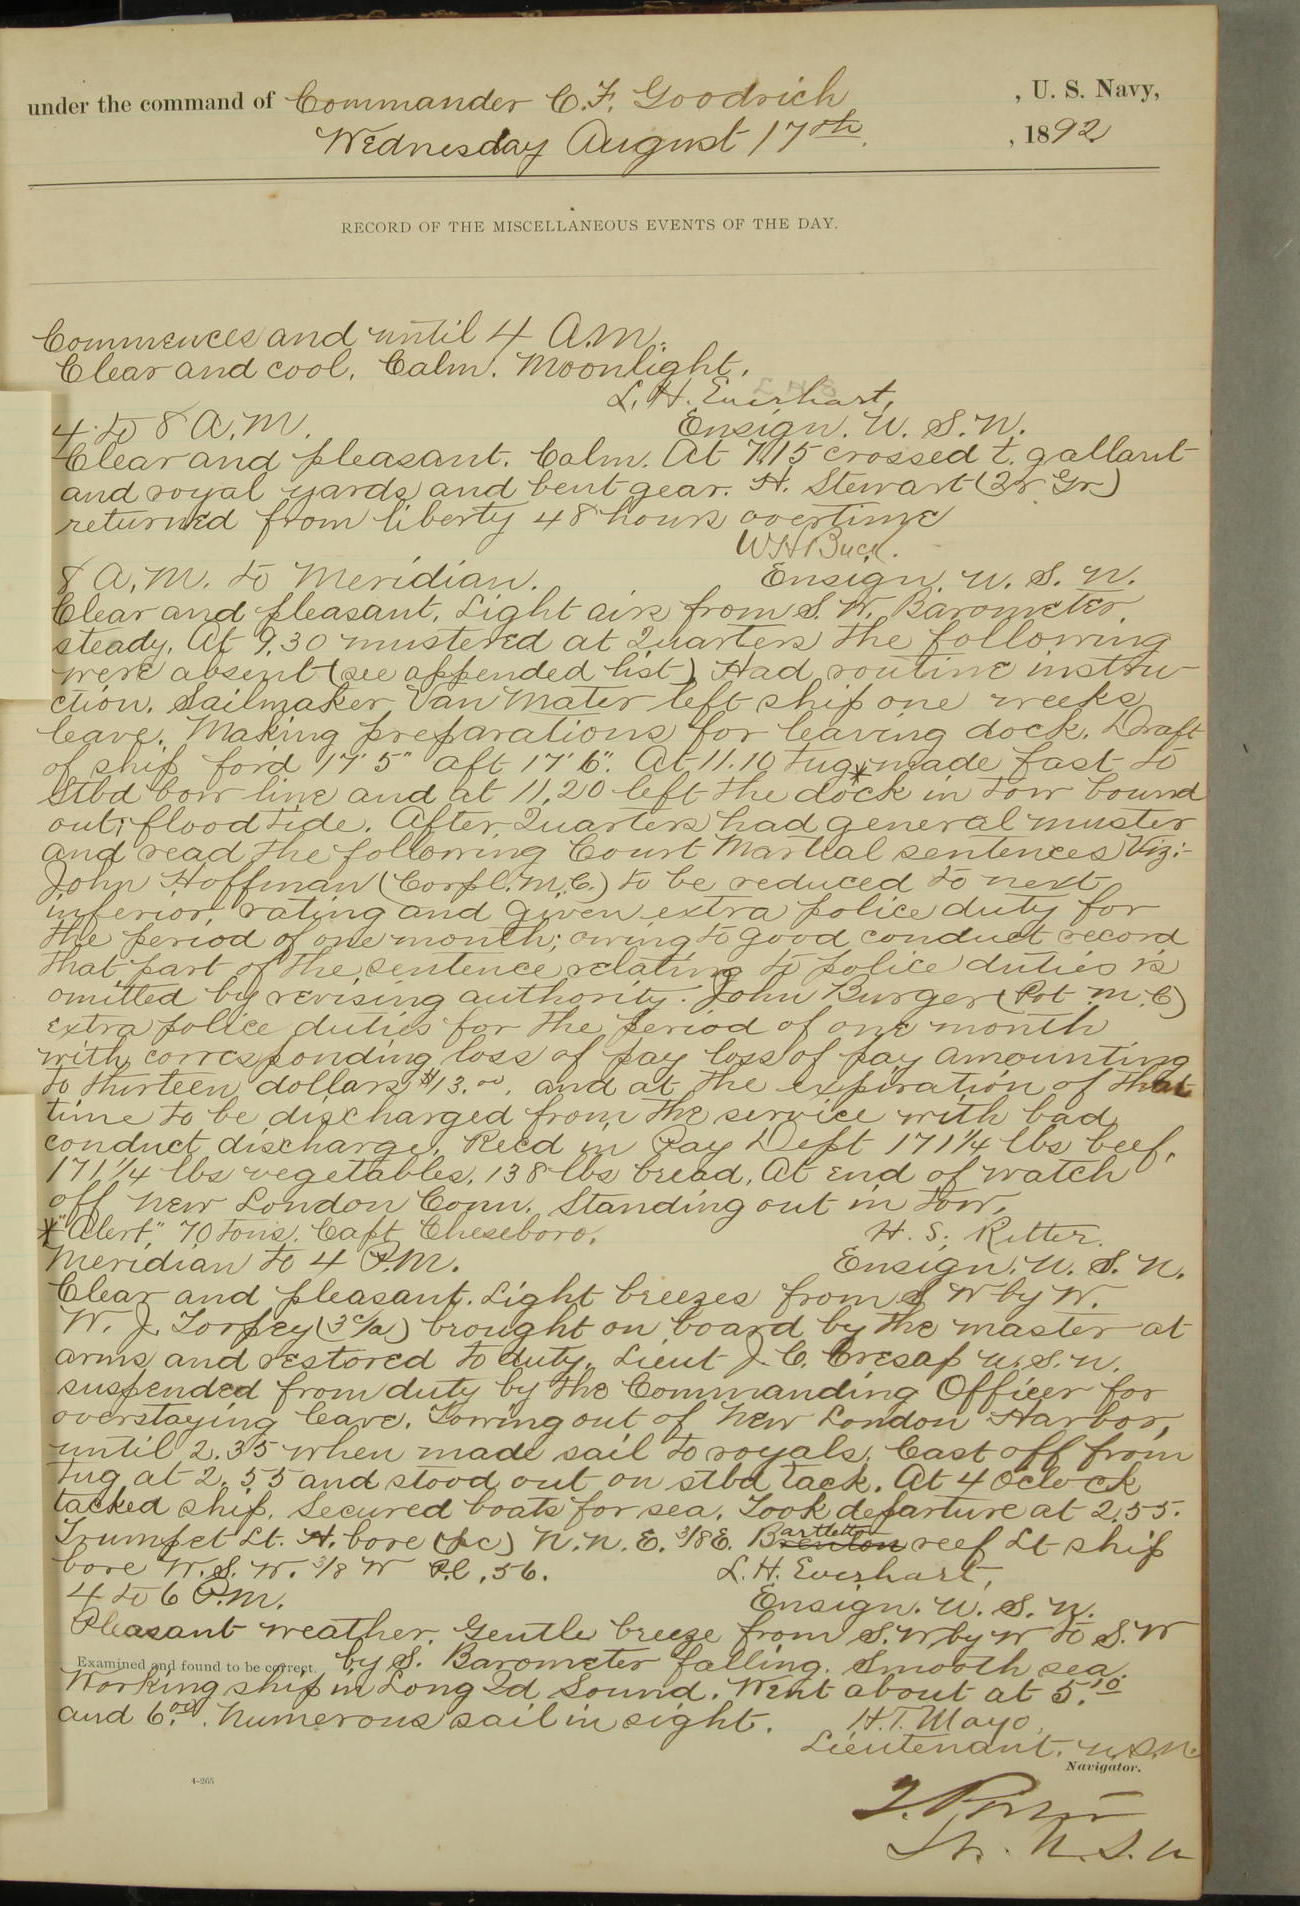 under the command of Commander C. F. Goodrich , U. S. Navy,
Wednesday August 17th. , 1892
RECORD OF THE MISCELLANEOUS EVENTS OF THE DAY.
Commences and until 4 A.M.
Clear and cool. Calm. Moonlight.
L. H. Everhart,
4 to 8 A.M. Ensign. U. S. N.
Clear and pleasant. Calm. At 7.15 crossed t. gallant
and royal yards and bent gear. H. Stewart (2r Gr)
returned from liberty 48 hours overtime
W H Buck.
8 A.M. to Meridian. Ensign. U. S. N.
Clear and pleasant. Light airs from S. W. Barometer
steady. At 9.30 mustered at Quarters the following
were absent (see appended list). Had routine instru-
ction. Sailmaker Van Mater left ship one weeks
leave. Making preparations for leaving dock. Draft
of ship for'd 17' 5" aft 17' 6". At 11.10 tug* made fast to
Stbd bow line and at 11.20 left the dock in tow bound
out; flood tide. After Quarters had general muster
and read the following Court Martial sentences Viz:-
John Hoffman (Corpl. M.C.) to be reduced to next
inferior rating and given extra police duty for
the period of one month; owing to good conduct record
that part of the sentence relating to police duties is
omitted by revising authority. John Burger (Pvt M.C)
extra police duties for the period of one month
with corresponding loss of pay loss of pay amounting
to thirteen dollars $13.00. and at the expiration of that
time to be discharged from the service with bad
conduct discharge. Rec'd in Pay Dept 171 1/4 lbs beef,
171 1/4 lbs vegetables, 138 lbs bread. At end of watch
off New London Conn. Standing out in tow.
* "Alert," 70 tons. Capt Cheseboro. H. S. Ritter.
Meridian to 4 P.M. Ensign. U. S. N.
Clear and pleasant. Light breezes from S W by W.
W. J. Torpey (3c/a) brought on board by the master at
arms and restored to duty. Lieut J. C. Cresap U.S.N.
suspended from duty by the Commanding Officer for
overstaying leave. Towing out of New London Harbor,
until 2.35 when made sail to royals. Cast off from
tug at 2.55 and stood out on stbd tack. At 4 Oclock
tacked ship. Secured boats for sea. Took departure at 2.55.
Trumpet Lt. H. bore (pc) N. N. E. 3/8 E. Bartlett reef Lt ship
bore W. S. W. 3/8 W P.L. 56. L. H. Everhart,
4 to 6 P.M. Ensign. U. S. N.
Pleasant weather. Gentle breeze from S.W by W to S. W
by S. Barometer falling. Smooth sea.
Examined and found to be correct.
Working ship in Long Id Sound. Went about at 5.10
and 6.00. Numerous sail in sight. H.T. Mayo,
Lieutenant. U.S.N.
Navigator.
4-265
Lt. U. S. N